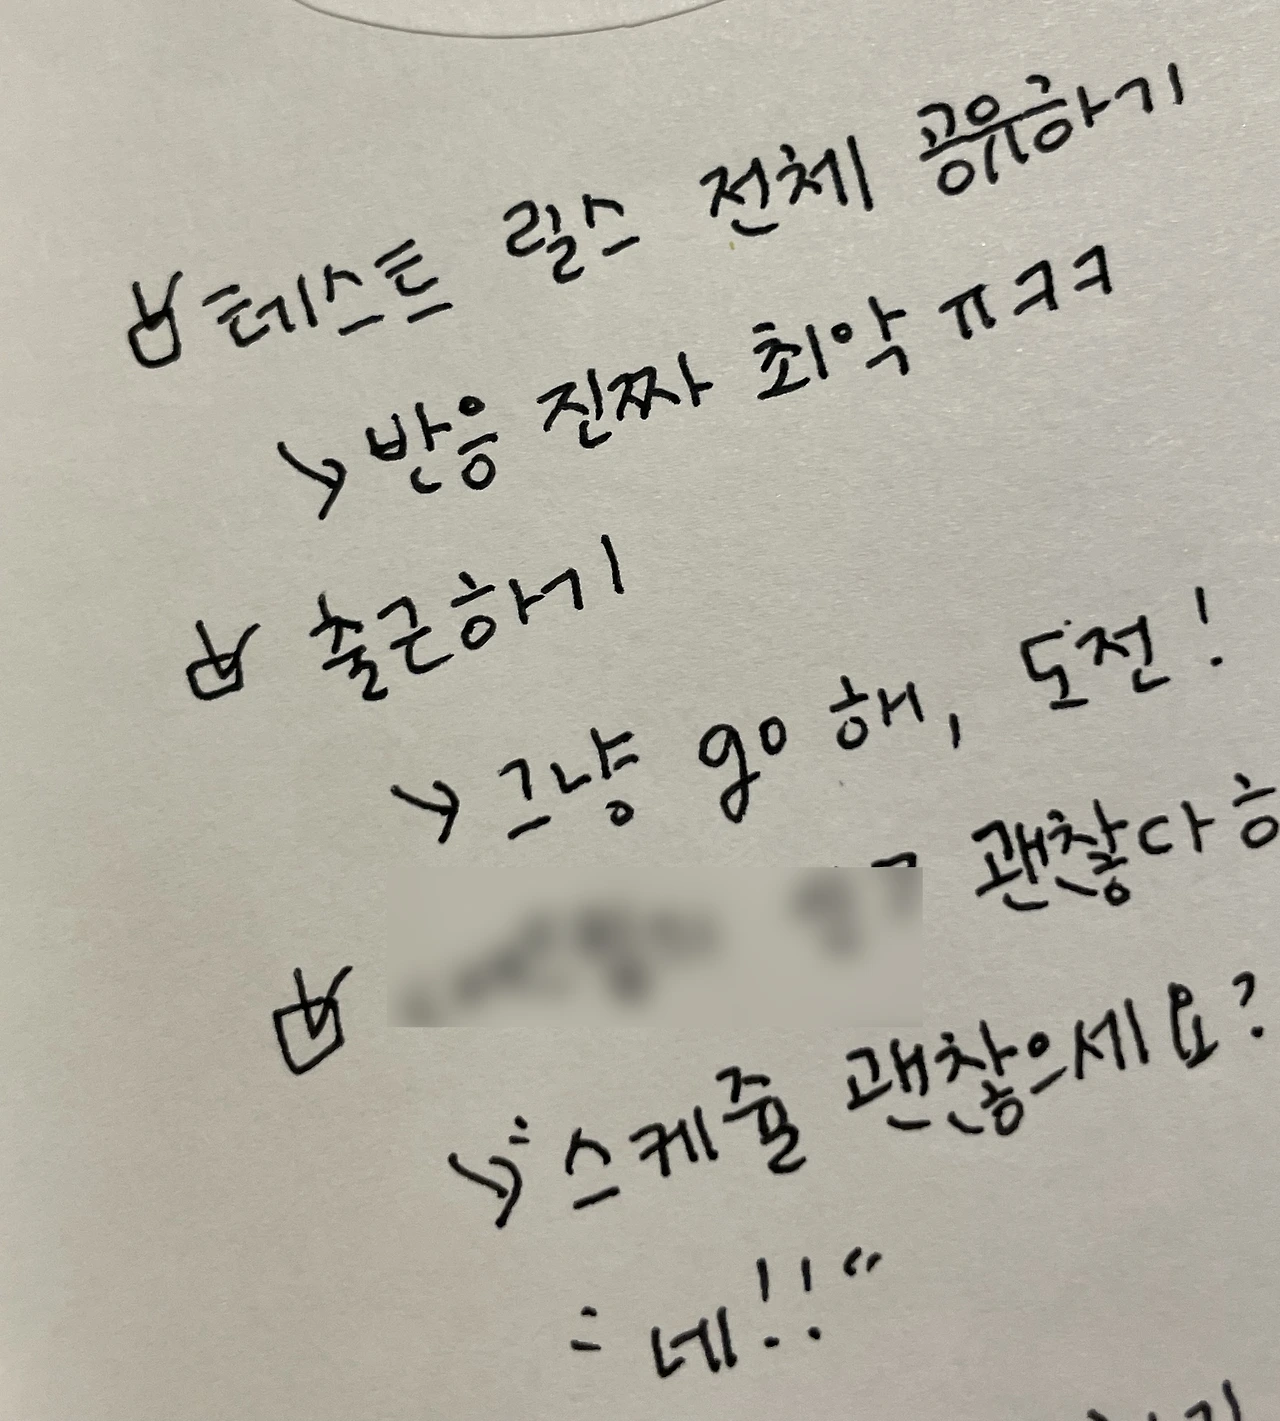 테스트 릴스 전체 공유하기
↘ 반응 진짜 최악 ㅠㅋㅋ
출근하기
↘ 그냥 go 해, 도전!
괜찮다
↘ " 스케줄 괜찮으세요?
= 네!! "